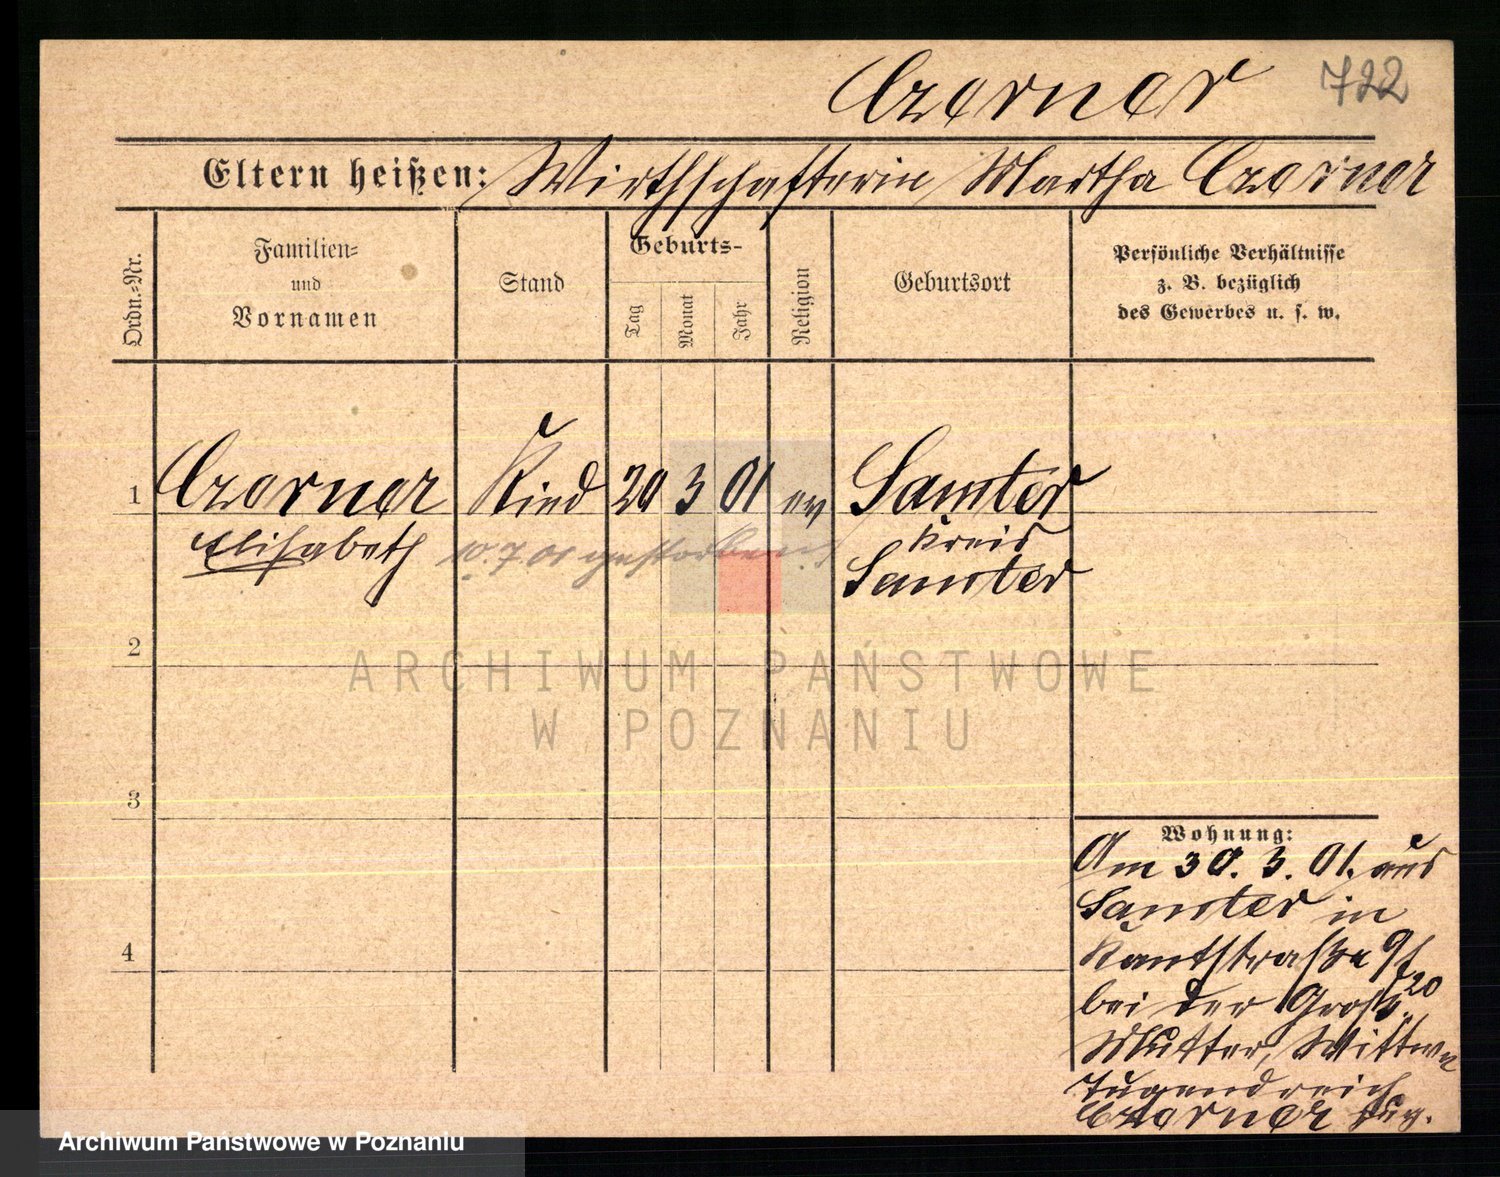 Czerner 722
Eltern heißen: Wirthschafterin Martha Czerner
Ordn.-Nr.
Familien-
und
Vornamen
Stand
Geburts-
Tag
Monat
Jahr
Religion
Geburtsort
Persönliche Verhältnisse
z. B. bezüglich
des Gewerbes u. s. w.
1 Czerner Kind 20 3 01 ev Samter
Elisabeth 10.7.01 gestorben Kreis
Samter
2
ARCHIWUM PAŃSTWOWE
W POZNANIU
3
Wohnung:
Am 30. 3. 01. aus
Samter in
Kantstraße 9/
20
bei der Groß-
Mutter, Wittwe
Czerner
4
Archiwum Państwowe w Poznaniu